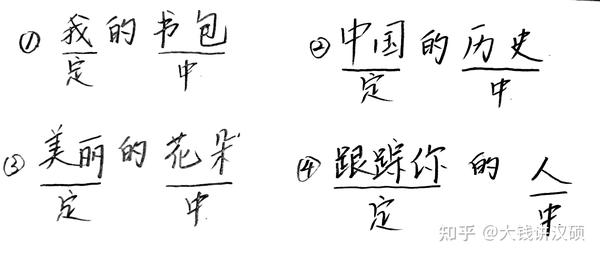 ① 我的书包 ② 中国的历史
定 中 定 中
③ 美丽的花朵 ④ 跟踪你的人
定 中 定 中
知乎 @大钱讲汉硕